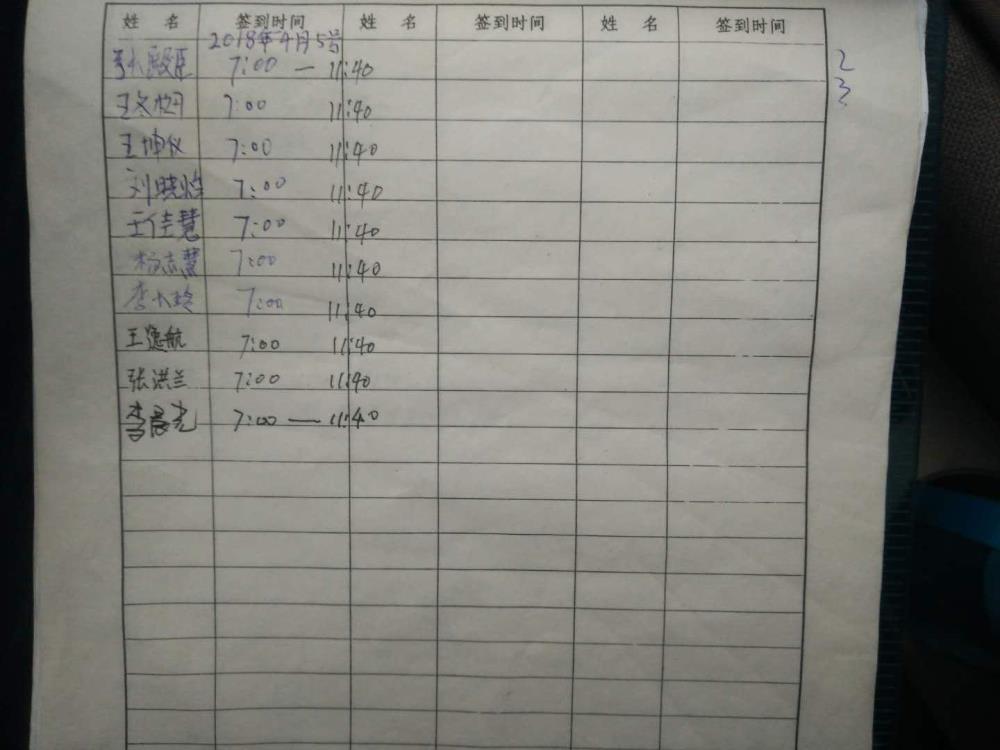 姓 名 签到时间 姓 名 签到时间 姓 名 签到时间
2018年4月5号
7:00 — 11:40 2
7:00 11:40 3
王坤仪 7:00 11:40
刘晓 7:00 11:40
王佳慧 7:00 11:40
杨志慧 7:00 11:40
李 玲 7:00 11:40
王德航 7:00 11:40
张洪兰 7:00 11:40
李晨光 7:00 — 11:40